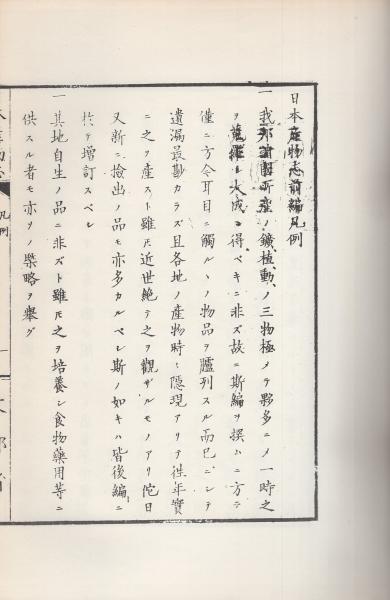 日本産物志前編凡例
一 我邦諸国所産ノ鑛植動ノ三物極メテ夥多ニノ一時之
ヲ蒐羅シ大成ヲ得ベキニ非ズ故ニ斯編ヲ撰ハニ方テ
僅ニ方今耳目ニ觸ルヽノ物品ヲ臚列スル而已ニシテ
遺漏最尠カラズ且各地ノ産物時ニ隠現アリテ徃年實
ニ之ヲ産スト雖𪜈近世絶テ之ヲ觀ザルモノアリ佗日
又新ニ撿出ノ品モ亦多カルベシ斯ノ如キハ皆後編ニ
於テ増訂スベシ
一 其地自生ノ品ニ非ズト雖𪜈之ヲ培養シ食物藥用等ニ
供スル者モ亦ソノ槩略ヲ擧グ
凡例
一